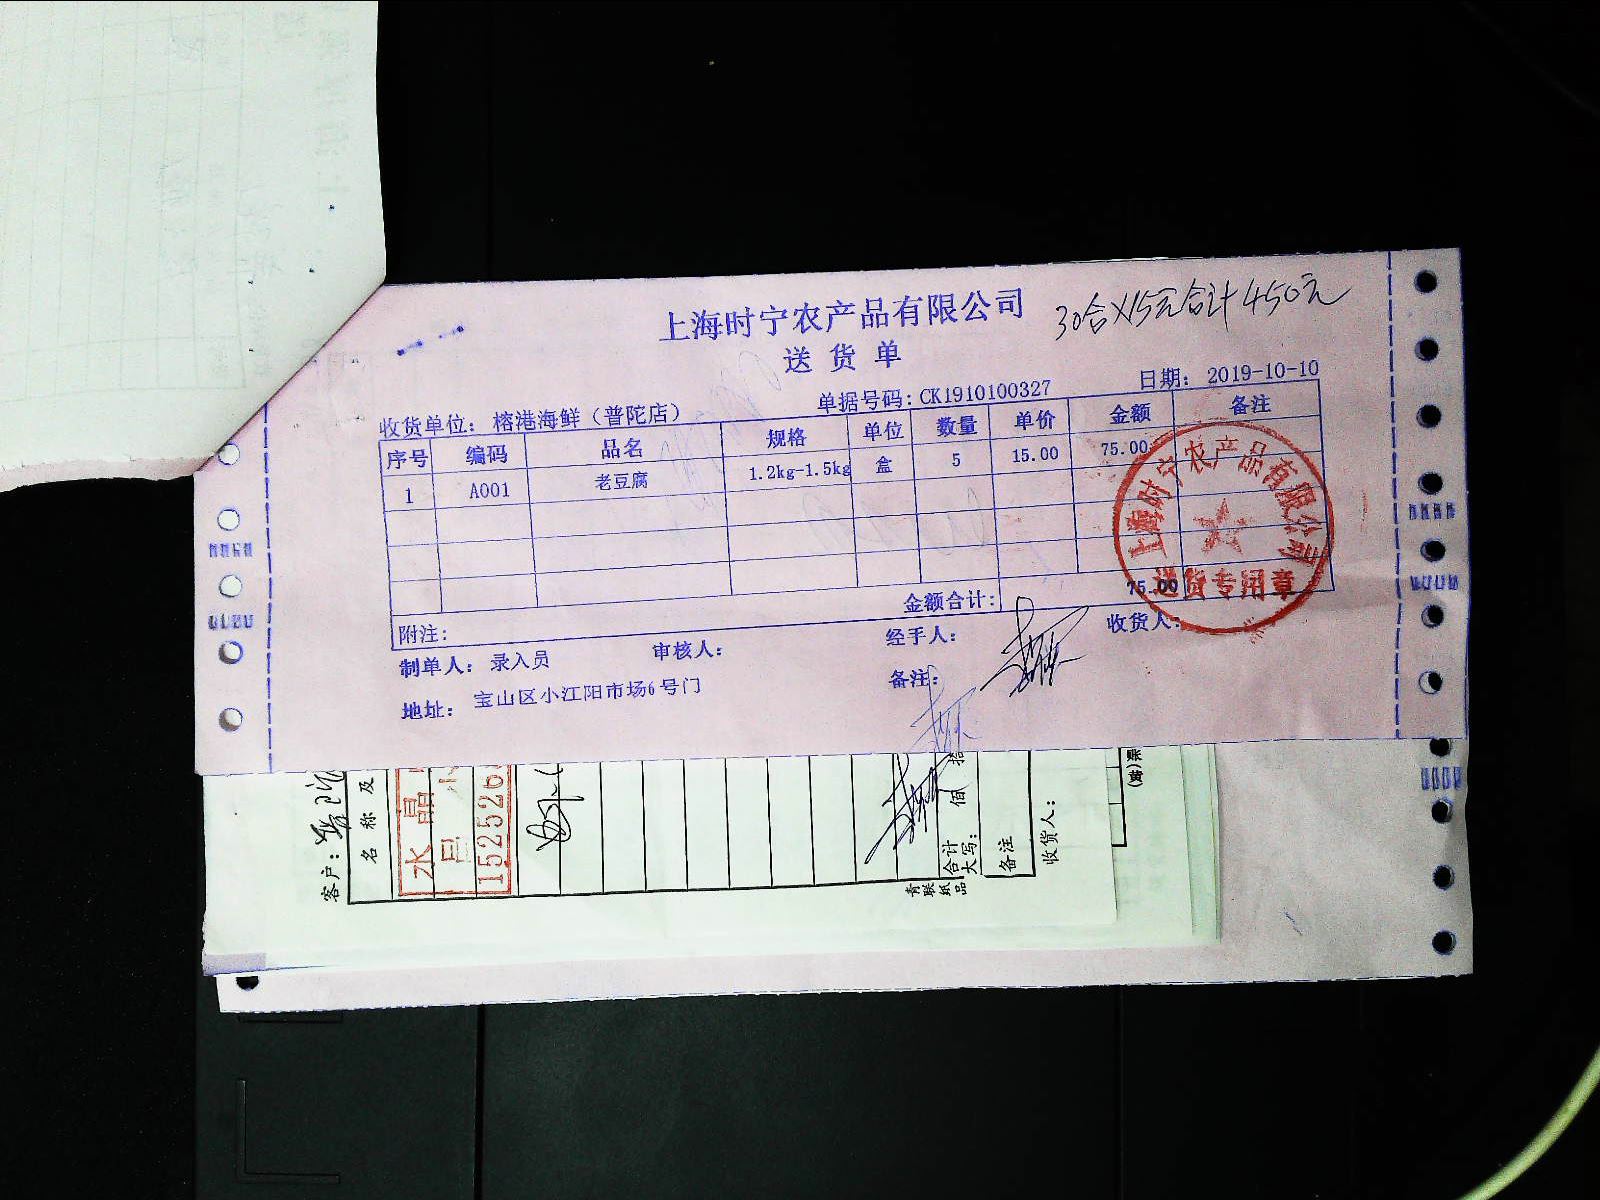 上海时宁农产品有限公司
30合X15元合计450元
送货单
收货单位：榕港海鲜（普陀店）
单据号码：CK1910100327
日期：2019-10-10
序号 编码 品名 规格 单位 数量 单价 金额 备注
1 A001 老豆腐 1.2kg-1.5kg 盒 5 15.00 75.00
上海时宁农产品有限公司
送货专用章
金额合计： 75.00
附注：
制单人：录入员 审核人： 经手人： 收货人：
地址：宝山区小江阳市场6号门 备注：
客户：
名称及
水晶
152526
合计
大写：
佰
拾
备注
收货人：
青联纸品